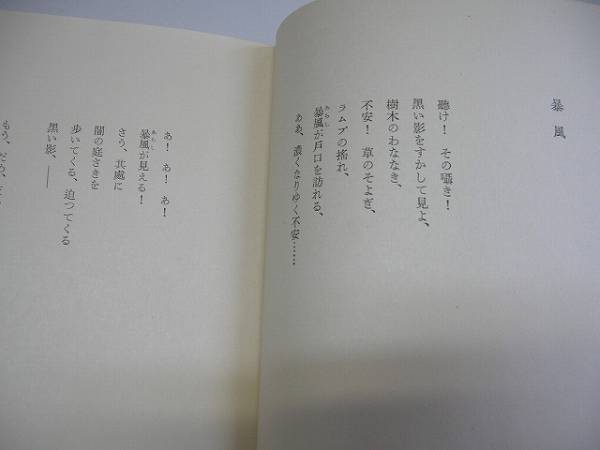 暴風
聽け！ その囁き！
黒い影をすかして見よ、
樹木のわななき、
不安！ 草のそよぎ、
ラムプの搖れ、
暴風が戸口を訪れる、
あゝ、濃くなりゆく不安……
あ！ あ！ あ！
暴風が見える！
さう、其處に
闇の庭さきを
歩いてくる、迫つてくる
黒い影、――
もう、だめ、だ